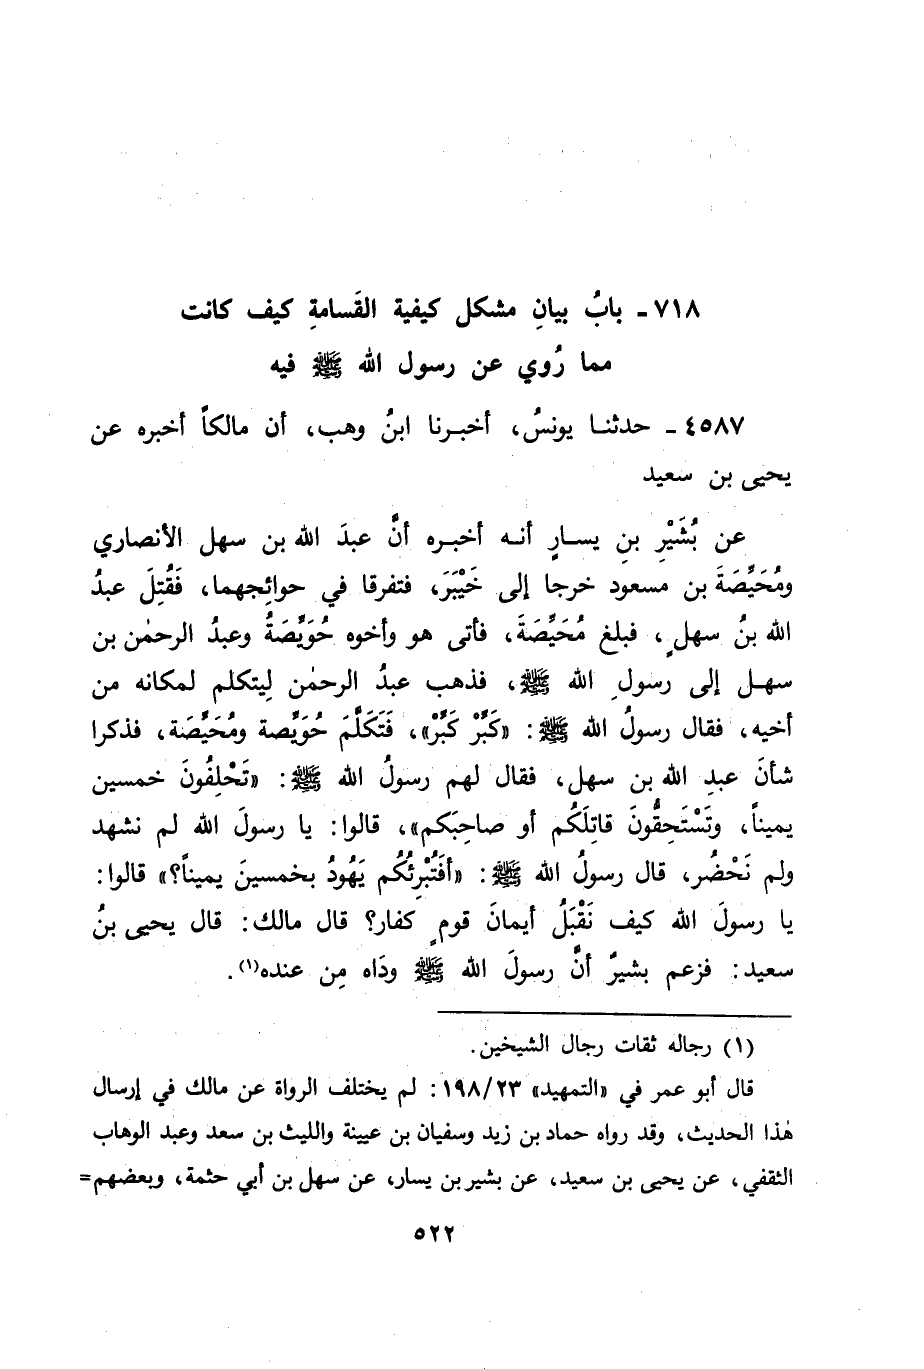 ٧١٨ - بابُ بيانِ مشكل كيفية القَسامةِ كيف كانت
مما رُوي عن رسول الله ﷺ فيه
٤٥٨٧ - حدثنـا يونسُ، أخبـرنا ابنُ وهب، أن مالكاً أخبره عن
يحيى بن سعيد
عن بُشَيْرِ بنِ يسـارٍ أنـه أخبـره أنَّ عبدَ الله بن سهل الأنصاري
ومُحَيِّصَةَ بن مسعود خرجا إلى خَيْبَرَ، فتفرقا في حوائِجهما، فَقُتِلَ عبدُ
الله بنُ سهلٍ، فبلغ مُحَيِّصَةَ، فأتى هو وأخوه حُوَيِّصَةُ وعبدُ الرحمٰن بن
سهـل إلى رسولِ الله ﷺ، فذهب عبدُ الرحمٰن لِيتكلم لمكانه من
أخيه، فقال رسولُ الله ﷺ: «كَبِّرْ كَبِّرْ»، فَتَكَلَّمَ حُوَيِّصة ومُحَيِّصَة، فذكرا
شأنَ عبدِ الله بن سهل، فقال لهم رسولُ الله ﷺ: «تَحْلِفُونَ خمسين
يميناً، وتَسْتَحِقُّونَ قاتِلَكُم أو صاحِبَكم»، قالوا: يا رسولَ الله لم نشهد
ولم نَحْضُر، قال رسولُ الله ﷺ: «أفَتُبْرِئُكُم يَهُودُ بخمسينَ يميناً؟» قالوا:
يا رسولَ الله كيف نَقْبَلُ أيمانَ قومٍ كفار؟ قال مالك: قال يحيى بنُ
سعيد: فزعم بشيرٌ أنَّ رسولَ الله ﷺ ودَاه مِن عنده(١).
(١) رجاله ثقات رجال الشيخين.
قال أبو عمر في «التمهيد» ١٩٨/٢٣: لم يختلف الرواة عن مالك في إرسال
هٰذا الحديث، وقد رواه حماد بن زيد وسفيان بن عيينة والليث بن سعد وعبد الوهاب
الثقفي، عن يحيى بن سعيد، عن بشير بن يسار، عن سهل بن أبي حثمة، وبعضهم=
٥٢٢